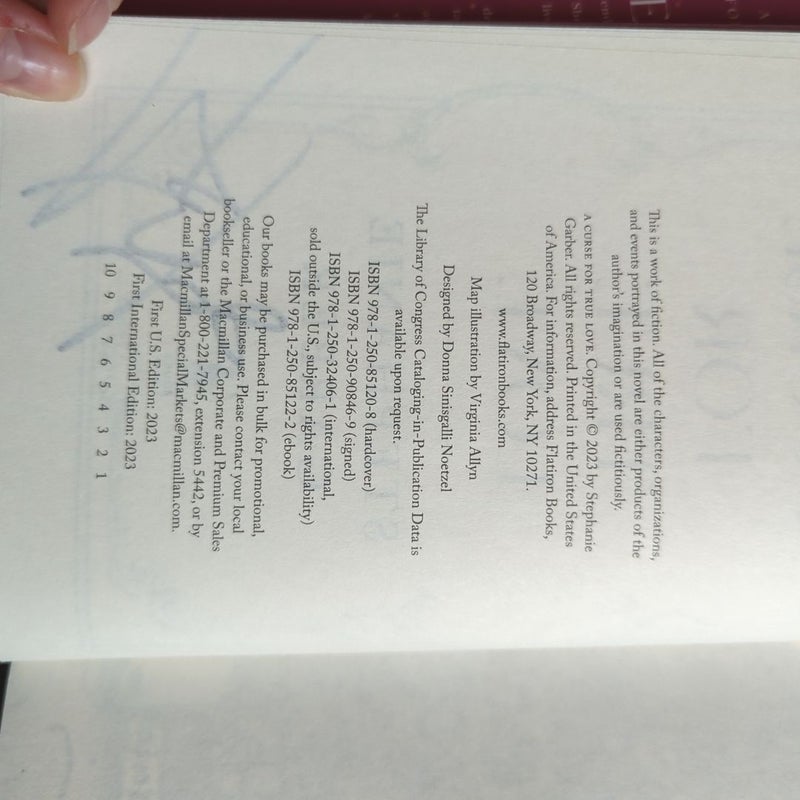 This is a work of fiction. All of the characters, organizations,
and events portrayed in this novel are either products of the
author's imagination or are used fictitiously.
A CURSE FOR TRUE LOVE. Copyright © 2023 by Stephanie
Garber. All rights reserved. Printed in the United States
of America. For information, address Flatiron Books,
120 Broadway, New York, NY 10271.
www.flatironbooks.com
Map illustration by Virginia Allyn
Designed by Donna Sinisgalli Noetzel
The Library of Congress Cataloging-in-Publication Data is
available upon request.
ISBN 978-1-250-85120-8 (hardcover)
ISBN 978-1-250-90846-9 (signed)
ISBN 978-1-250-32406-1 (international,
sold outside the U.S., subject to rights availability)
ISBN 978-1-250-85122-2 (ebook)
Our books may be purchased in bulk for promotional,
educational, or business use. Please contact your local
bookseller or the Macmillan Corporate and Premium Sales
Department at 1-800-221-7945, extension 5442, or by
email at MacmillanSpecialMarkets@macmillan.com.
First U.S. Edition: 2023
First International Edition: 2023
10 9 8 7 6 5 4 3 2 1